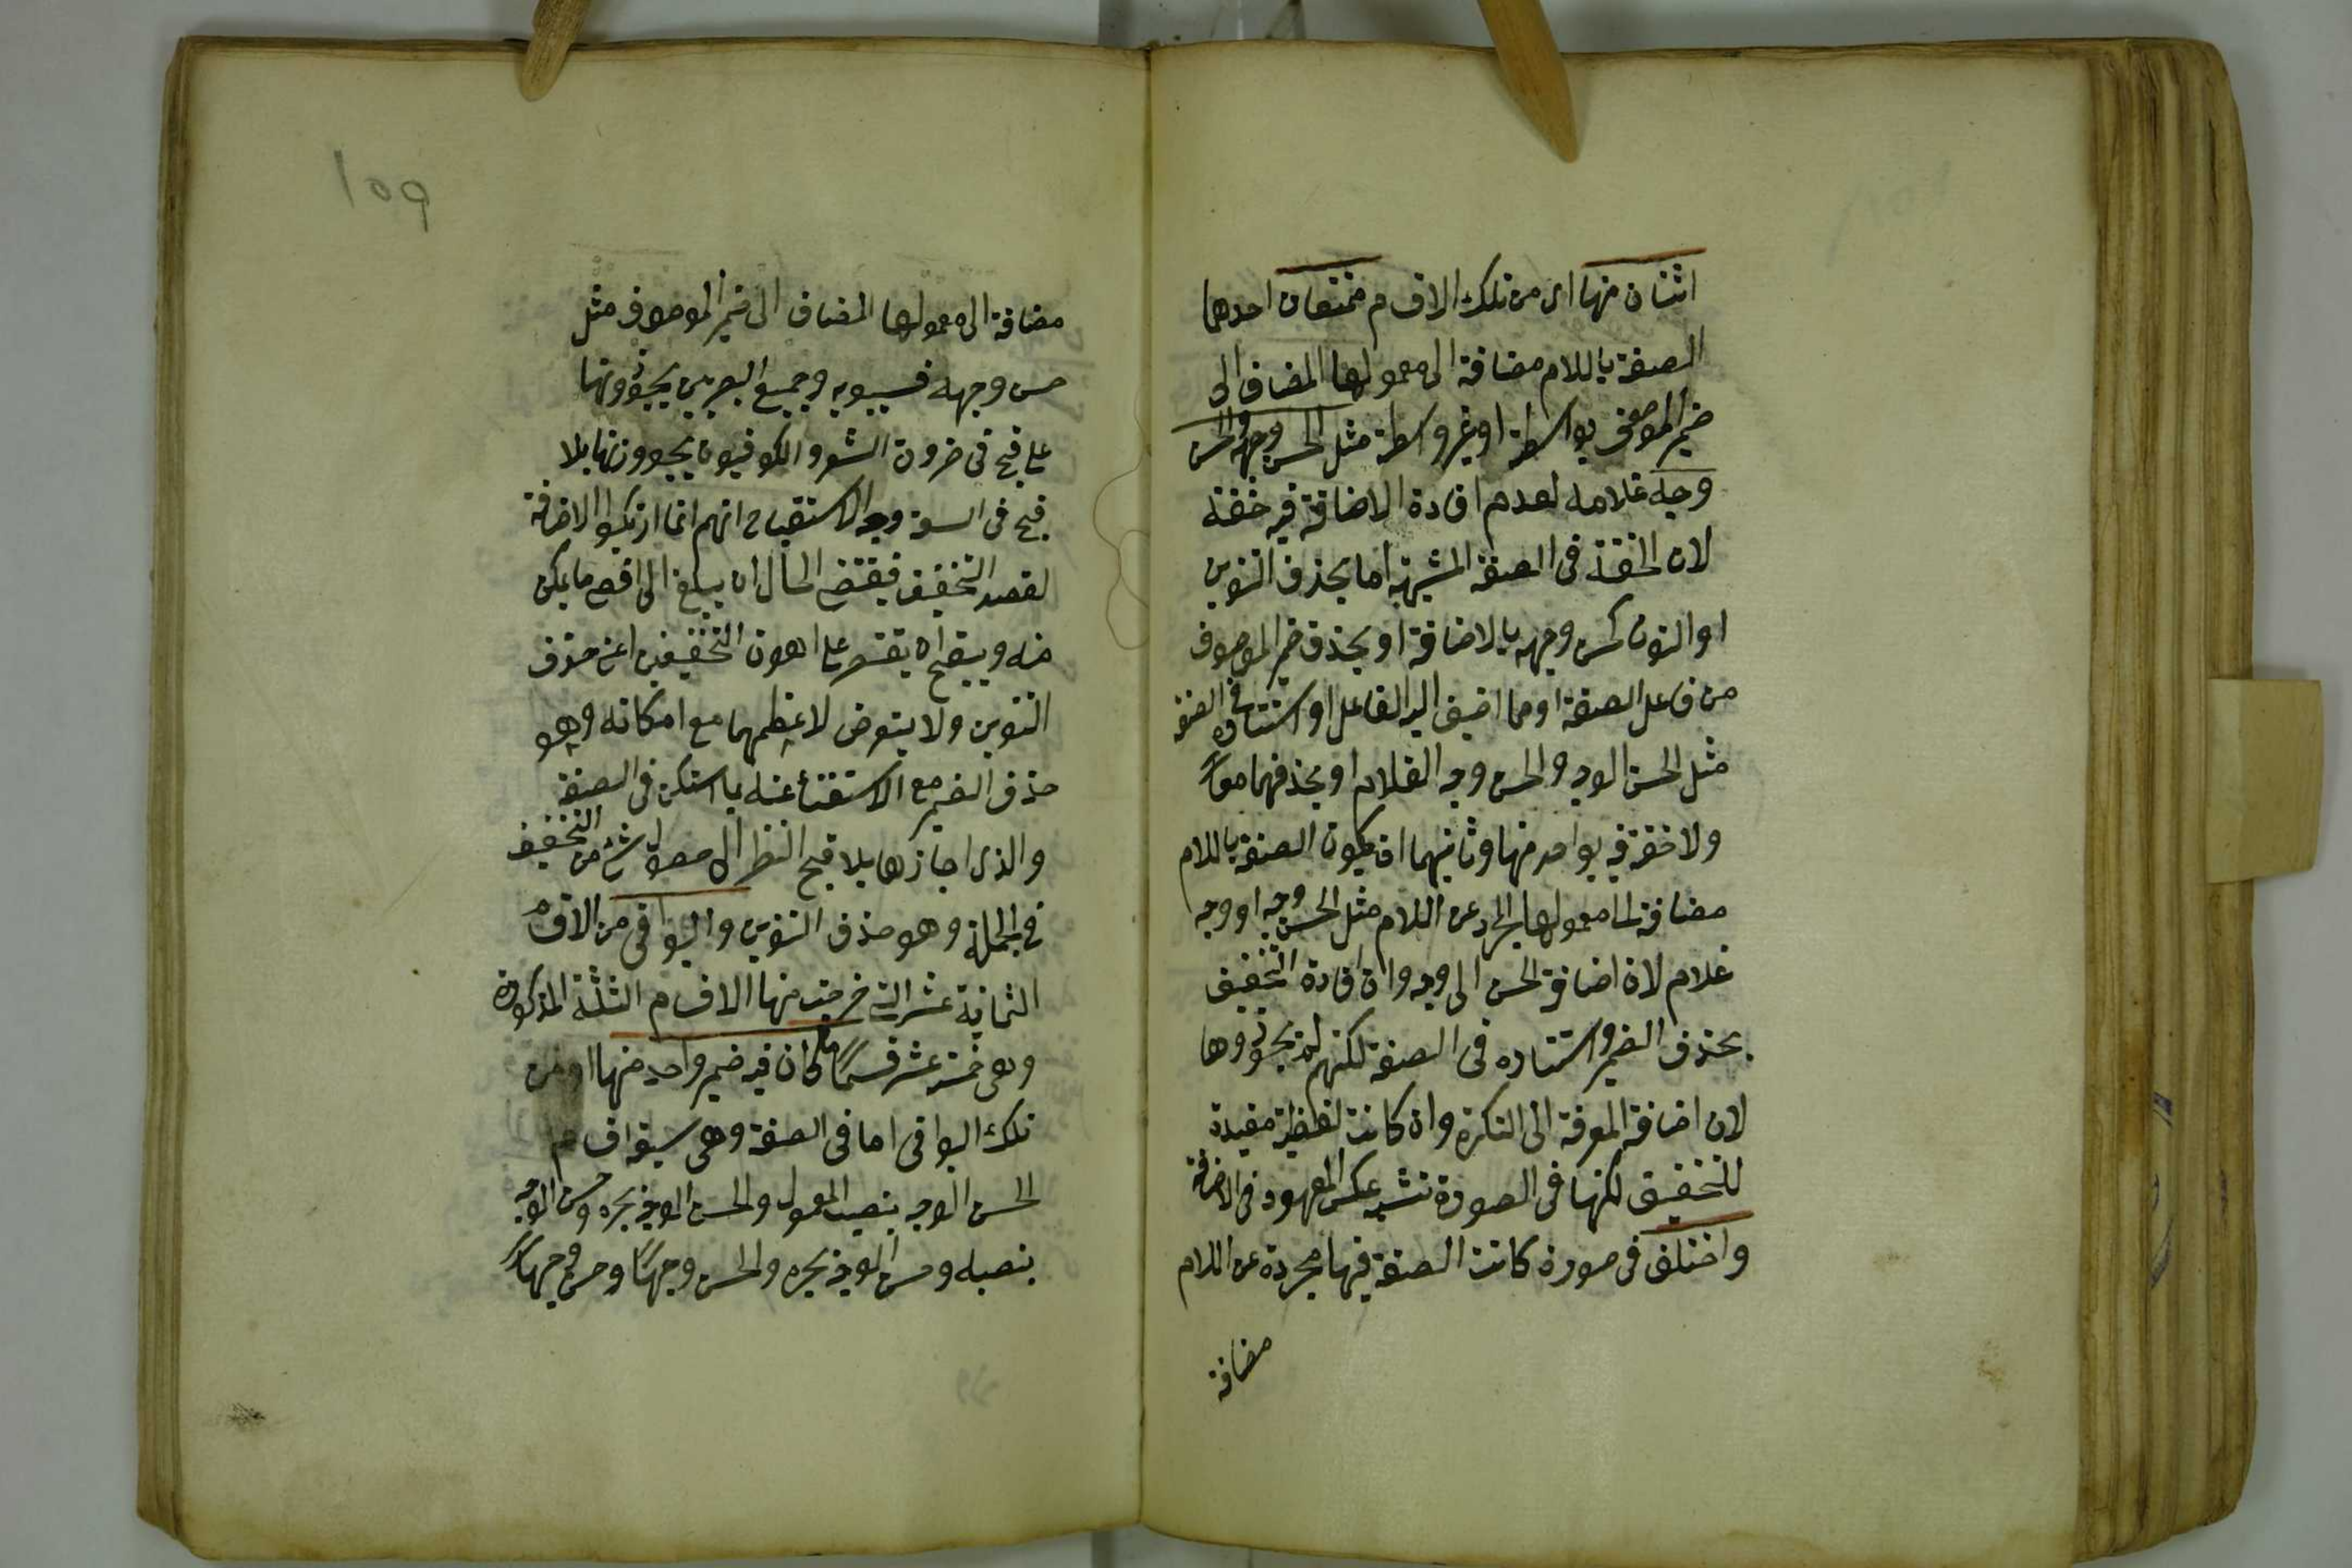 اثنان منها اى من تلك الاقسام ممتنعان احدهما
الصفة باللام مضافة الى معمولها المضاف الى
ضمير الموصوف بواسطة او بغير واسطة مثل الحسن وجهه والحسن
وجه غلامه لعدم افادة الاضافة فيه خفة
لان الخفة فى الصفة المشبهة اما بحذف التنوين
او النون كحسن وجهه بالاضافة او بحذف ضمير الموصوف
من فاعل الصفة او مما اضيف اليه الفاعل او استتاره فى الصفة
مثل الحسن الوجه والحسن وجه الغلام او بحذفهما معاً
ولا خفة فيه بواحد منها وثانيهما ان يكون الصفة باللام
مضافة الى معمولها المجرد عن اللام مثل الحسن وجه او وجه
غلام لان اضافة الحسن الى وجه وان افادة التخفيف
بحذف الضمير واستتاره فى الصفة لكنهم لم يجوزوها
لان اضافة المعرفة الى النكرة وان كانت لفظية مفيدة
للتخفيف لكنها فى الصورة تشبه عكس المعهود فى الاضافة
واختلف فى صورة كانت الصفة فيها مجردة عن اللام
مضافة
١٥٩
مضافة الى معمولها المضاف الى ضمير الموصوف مثل
حسن وجهه فسيبويه وجميع البصريين يجوزونها
على قبح فى ضرورة الشعر والكوفيون يجوزونها بلا
قبح فى السعة وجه الاستقباح انهم انما ارتكبوا الاضافة
لقصد التخفيف فيقتضى الحال ان يبلغ الى اقصى ما يمكن
منه ويقبح ان يقتصر على اهون التخفيفين اعنى حذف
التنوين ولا يتعرض لاعظمهما مع امكانه وهو
حذف الضمير مع الاستغناء عنه بما استكن فى الصفة
والذى اجازها بلا قبح النظر الى حصول شئ من التخفيف
فى الجملة وهو حذف التنوين والبواقى من الاقسام
الثمانية عشر التى خرجت منها الاقسام الثلثة المذكورة
وهى خمسة عشر قسماً ما كان فيه ضمير واحد منها اى من
تلك البواقى اما فى الصفة وهى سبعة اقسام
الحسن الوجه بنصب المعمول والحسن الوجه بجره وحسن الوجه
بنصبه وحسن الوجه بجره والحسن وجهاً وحسن وجهاً